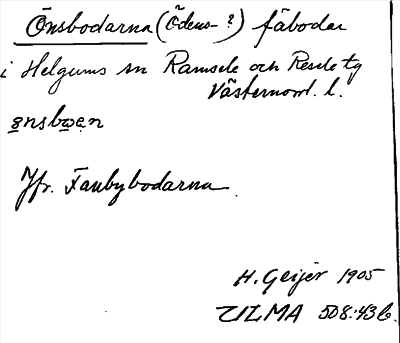 Önsbodarna (Ödens- ?) fäbodar
i Helgums sn Ramsele och Resele tg
Västernorrl. l.
Jfr. Fanbybodarna
H. Geijer 1905
ULMA 508:43 b.